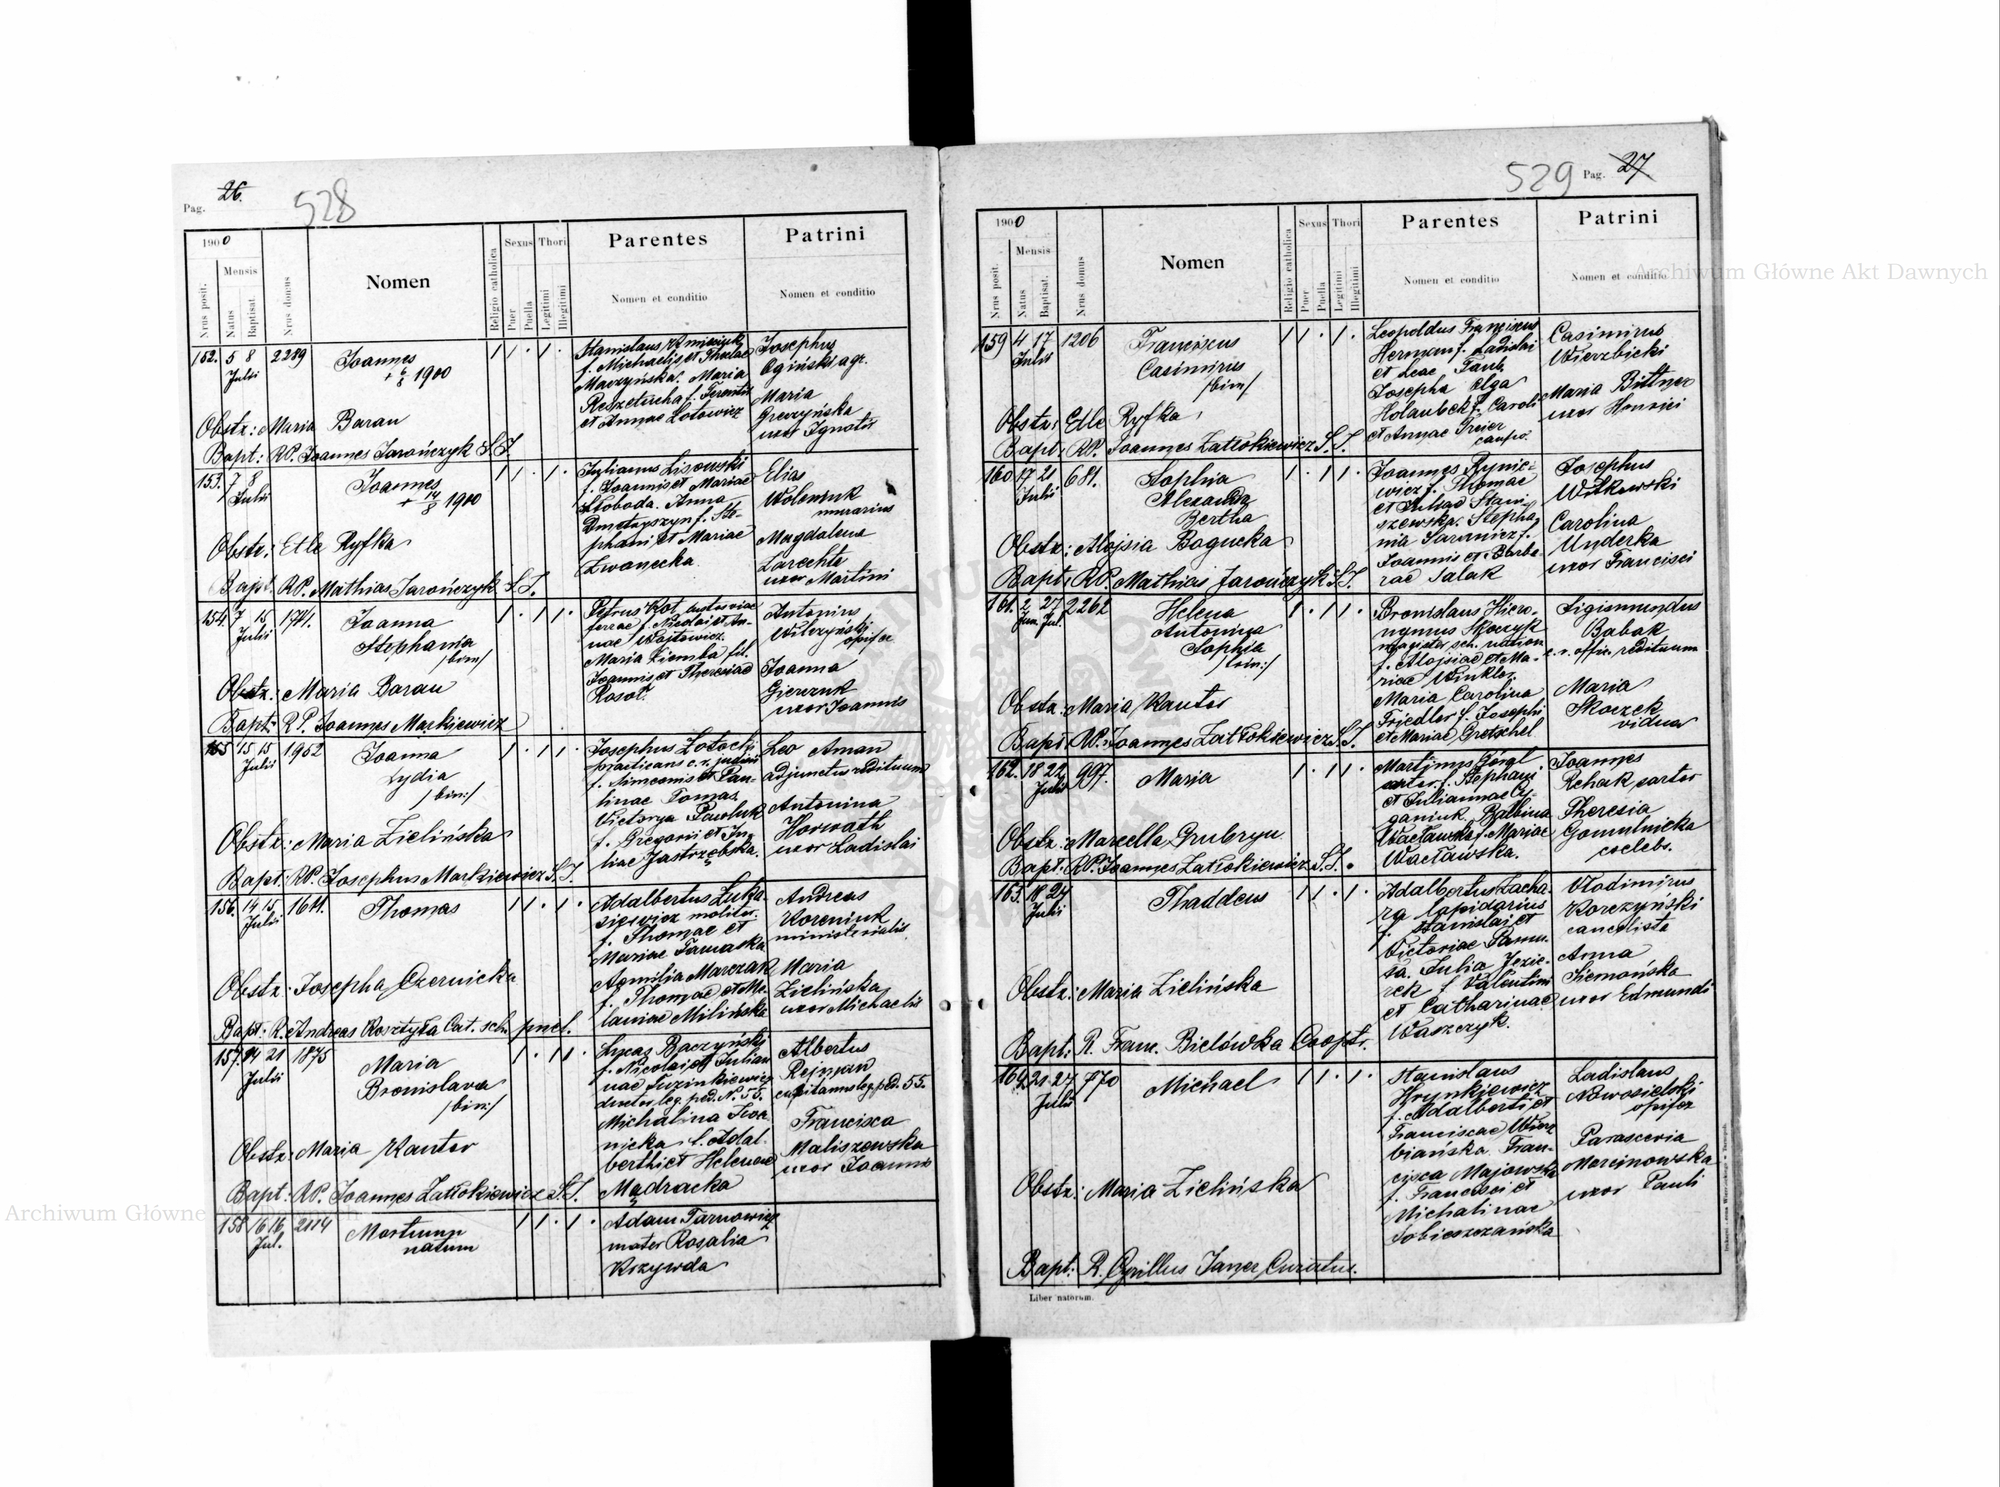 Pag. 26.
528
1900
Nrus posit.
Mensis
Natus
Baptisat.
Nrus domus
Nomen
Religio catholica
Sexus
Puer
Puella
Thori
Legitimi
Illegitimi
Parentes
Nomen et conditio
Patrini
Nomen et conditio
152. 5 8 2289 Joannes
Julii
+ 6/8 1900
Stanislaus
f. Michaelis et Theclae
Maczyńska. Maria
Reszetucha f. Terentii
et Annae Łotowicz
Josephus
Ogiński agr.
Maria
Greczyńska
uxor Ignatii
Obstr: Maria Baran
Bapt: RP. Joannes Jarończyk S.J.
153. 7 8 Joannes
Julii
+ 14/8 1900
Julianus Lisowski
f. Joannis et Mariae
Słoboda. Anna
f. Ste-
phani et Mariae
Iwanecka.
Elias
murarius
Magdalena
Zarechta
uxor Martini
Obstr: Etle Ryfka
Bapt: RP. Mathias Jarończyk S.J.
154. 7 15 1741. Joanna
Julii
Stephania
/bin:/
Petrus Kot, custos viae
ferrae f. Nicolai et An-
nae Wojtowicz.
Maria Ziemba fil.
Joannis et Theresiae
Rosół.
Antonius
Wilczyński
opifex
Joanna
Gierczuk
uxor Joannis
Obstr: Maria Baran
Bapt: RP. Joannes Markiewicz
155 15 15 1952 Joanna
Julii
Lydia
/bin:/
Josephus Łotocki
practicans c. r. judicii
f. Simeonis et Pau-
linae Tomas.
Victorya Pawluk
f. Gregorii et Ju-
liae Jastrzębska.
Leo Aman
adjunctus redituum
Antonina
Horwath
uxor Ladislai
Obstr: Maria Zielińska
Bapt: RP. Josephus Markiewicz S.J.
156. 14 15 1611. Thomas
Julii
Adalbertus Łuka-
siewicz molitor
f. Thomae et
Mariae Tarnaska
Aemilia Marczak
f. Thomae et Me-
laniae Milińska
Andreas
Koreniuk
ministerialis.
Maria
Zielińska
uxor Michaelis
Obstr: Josepha Czernicka
Bapt: R. Andreas Kosztyła Cat. sch. puel.
157. 14 21 1875 Maria
Julii
Bronislava
/bin:/
Lucas Baczyński
f. Nicolai et Julian-
nae Juzinkiewicz
ductor leg. ped. N. 55.
Michalina Iwa-
nicka f. Adal-
berthi et Helenae
Mądracka
Albertus
Rejman
capitaneus leg. ped. 55.
Francisca
Maliszewska
uxor Joannis
Obstr: Maria Kantor
Bapt: RP. Joannes Zatłokiewicz S.J.
158 16 16 2114 Mortuum
Jul.
natum
Adam Tarnowicz
mater Rosalia
Krzywda
529
Pag. 27
1900
Nrus posit.
Mensis
Natus
Baptisat.
Nrus domus
Nomen
Religio catholica
Sexus
Puer
Puella
Thori
Legitimi
Illegitimi
Parentes
Nomen et conditio
Patrini
Nomen et conditio
159 4 17 1206 Franciscus
Julii
Casimirus
/bin:/
Leopoldus Franciscus
Herman f. Ladislai
et Leae Taub.
Josepha Olga
Holaubek f. Caroli
et Annae Greier
caupo.
Casimirus
Wierzbicki
Maria Bittner
uxor Henrici
Obstr: Etle Ryfka
Bapt: RP. Joannes Zatłokiewicz S.J.
160 17 21 681. Sophia
Julii
Alexandra
Bertha
Joannes Rynie-
wicz f. Thomae
et Juliae Stani-
szewska. Stepha-
nia Sarnicz f.
Joannis et Barba-
rae Salak
Josephus
Witkowski
Carolina
Underka
uxor Francisci
Obstr: Alojsia Bogucka
Bapt: RP. Mathias Jarończyk S.J.
161. 2 27 2262 Helena
Jun. Jul.
Antonina
Sophia
/trin:/
Bronislaus Hiero-
nymus Skoczyk
magister sch. nation.
f. Alojsiae et Ma-
riae Winkler
Maria Carolina
Friedler f. Josephi
et Mariae Gretschel
Sigismundus
Babak
c. r. offic. redituum
Maria
Skoczek
vidua
Obstr: Maria Kantor
Bapt: RP. Joannes Zatłokiewicz S.J.
162. 18 22 997. Maria
Julii
Martinus Görgl
sartor f. Stephani
et Juliannae Cy-
ganiuk. Balbina
Wacławska f. Mariae
Wacławska.
Joannes
Rehak sartor
Theresia
Gomulnicka
coelebs.
Obstr: Marcella Grubryn
Bapt: RP. Joannes Zatłokiewicz S.J.
163. 18 24 Thaddeus
Julii
Adalbertus Zacha-
ra lapidarius
f. Stanislai et
Victoriae Pamu-
ła. Julia Jezie-
rek f. Valentini
et Catharinae
Waszczyk.
Vlodimirus
Korczyński
cancelista
Anna
Siemońska
uxor Edmundi
Obstr: Maria Zielińska
Bapt: R. Franc. Bielówka Cooptr.
164. 21 24 770 Michael
Julii
Stanislaus
Hrynkiewicz
f. Adalberti et
Franciscae Wierz-
biańska. Fran-
cisca Majowska
f. Francisci et
Michalinae
Sobieszczańska
Ladislaus
Nowosielski
opifex
Parasceria
Marcinowska
uxor Pauli
Obstr: Maria Zielińska
Bapt: R. Cyrillus Janer Curatus.
Liber natorum.
Archiwum Główne Akt Dawnych
Archiwum Główne Akt Dawnych